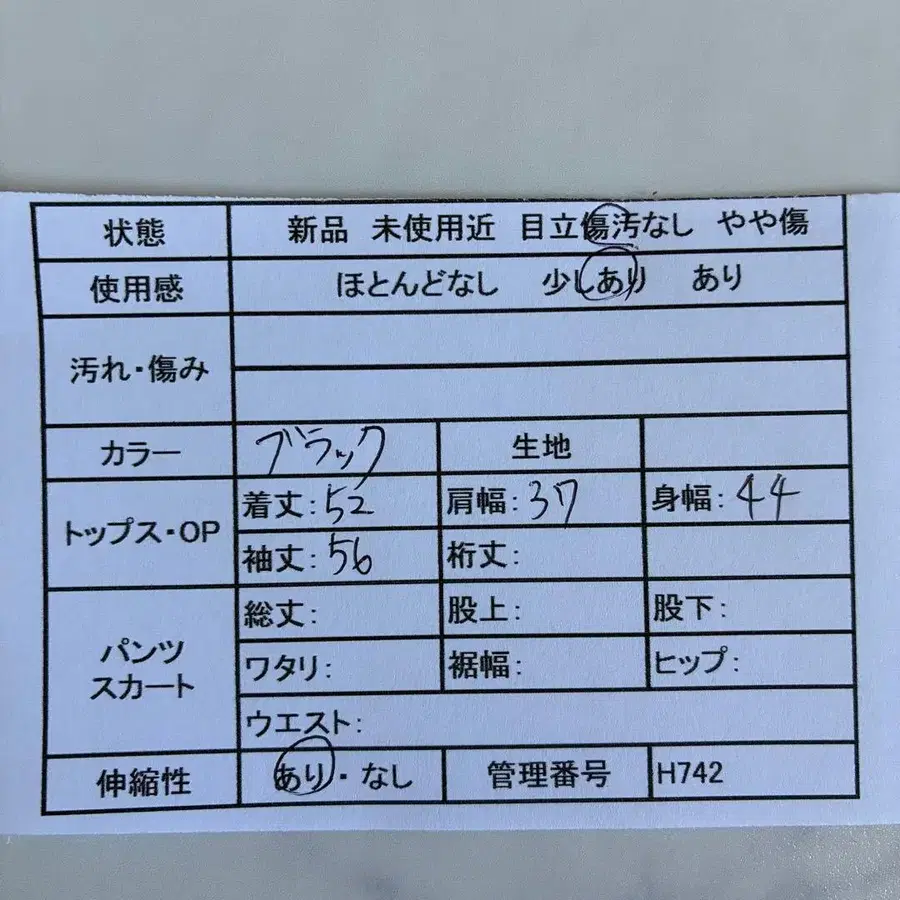 状態 新品 未使用近 目立傷汚なし やや傷
使用感 ほとんどなし 少しあり あり
汚れ・傷み
カラー ブラック 生地
トップス・OP 着丈:52 肩幅:37 身幅:44
袖丈:56 裄丈:
パンツ スカート 総丈: 股上: 股下:
ワタリ: 裾幅: ヒップ:
ウエスト:
伸縮性 あり・なし 管理番号 H742